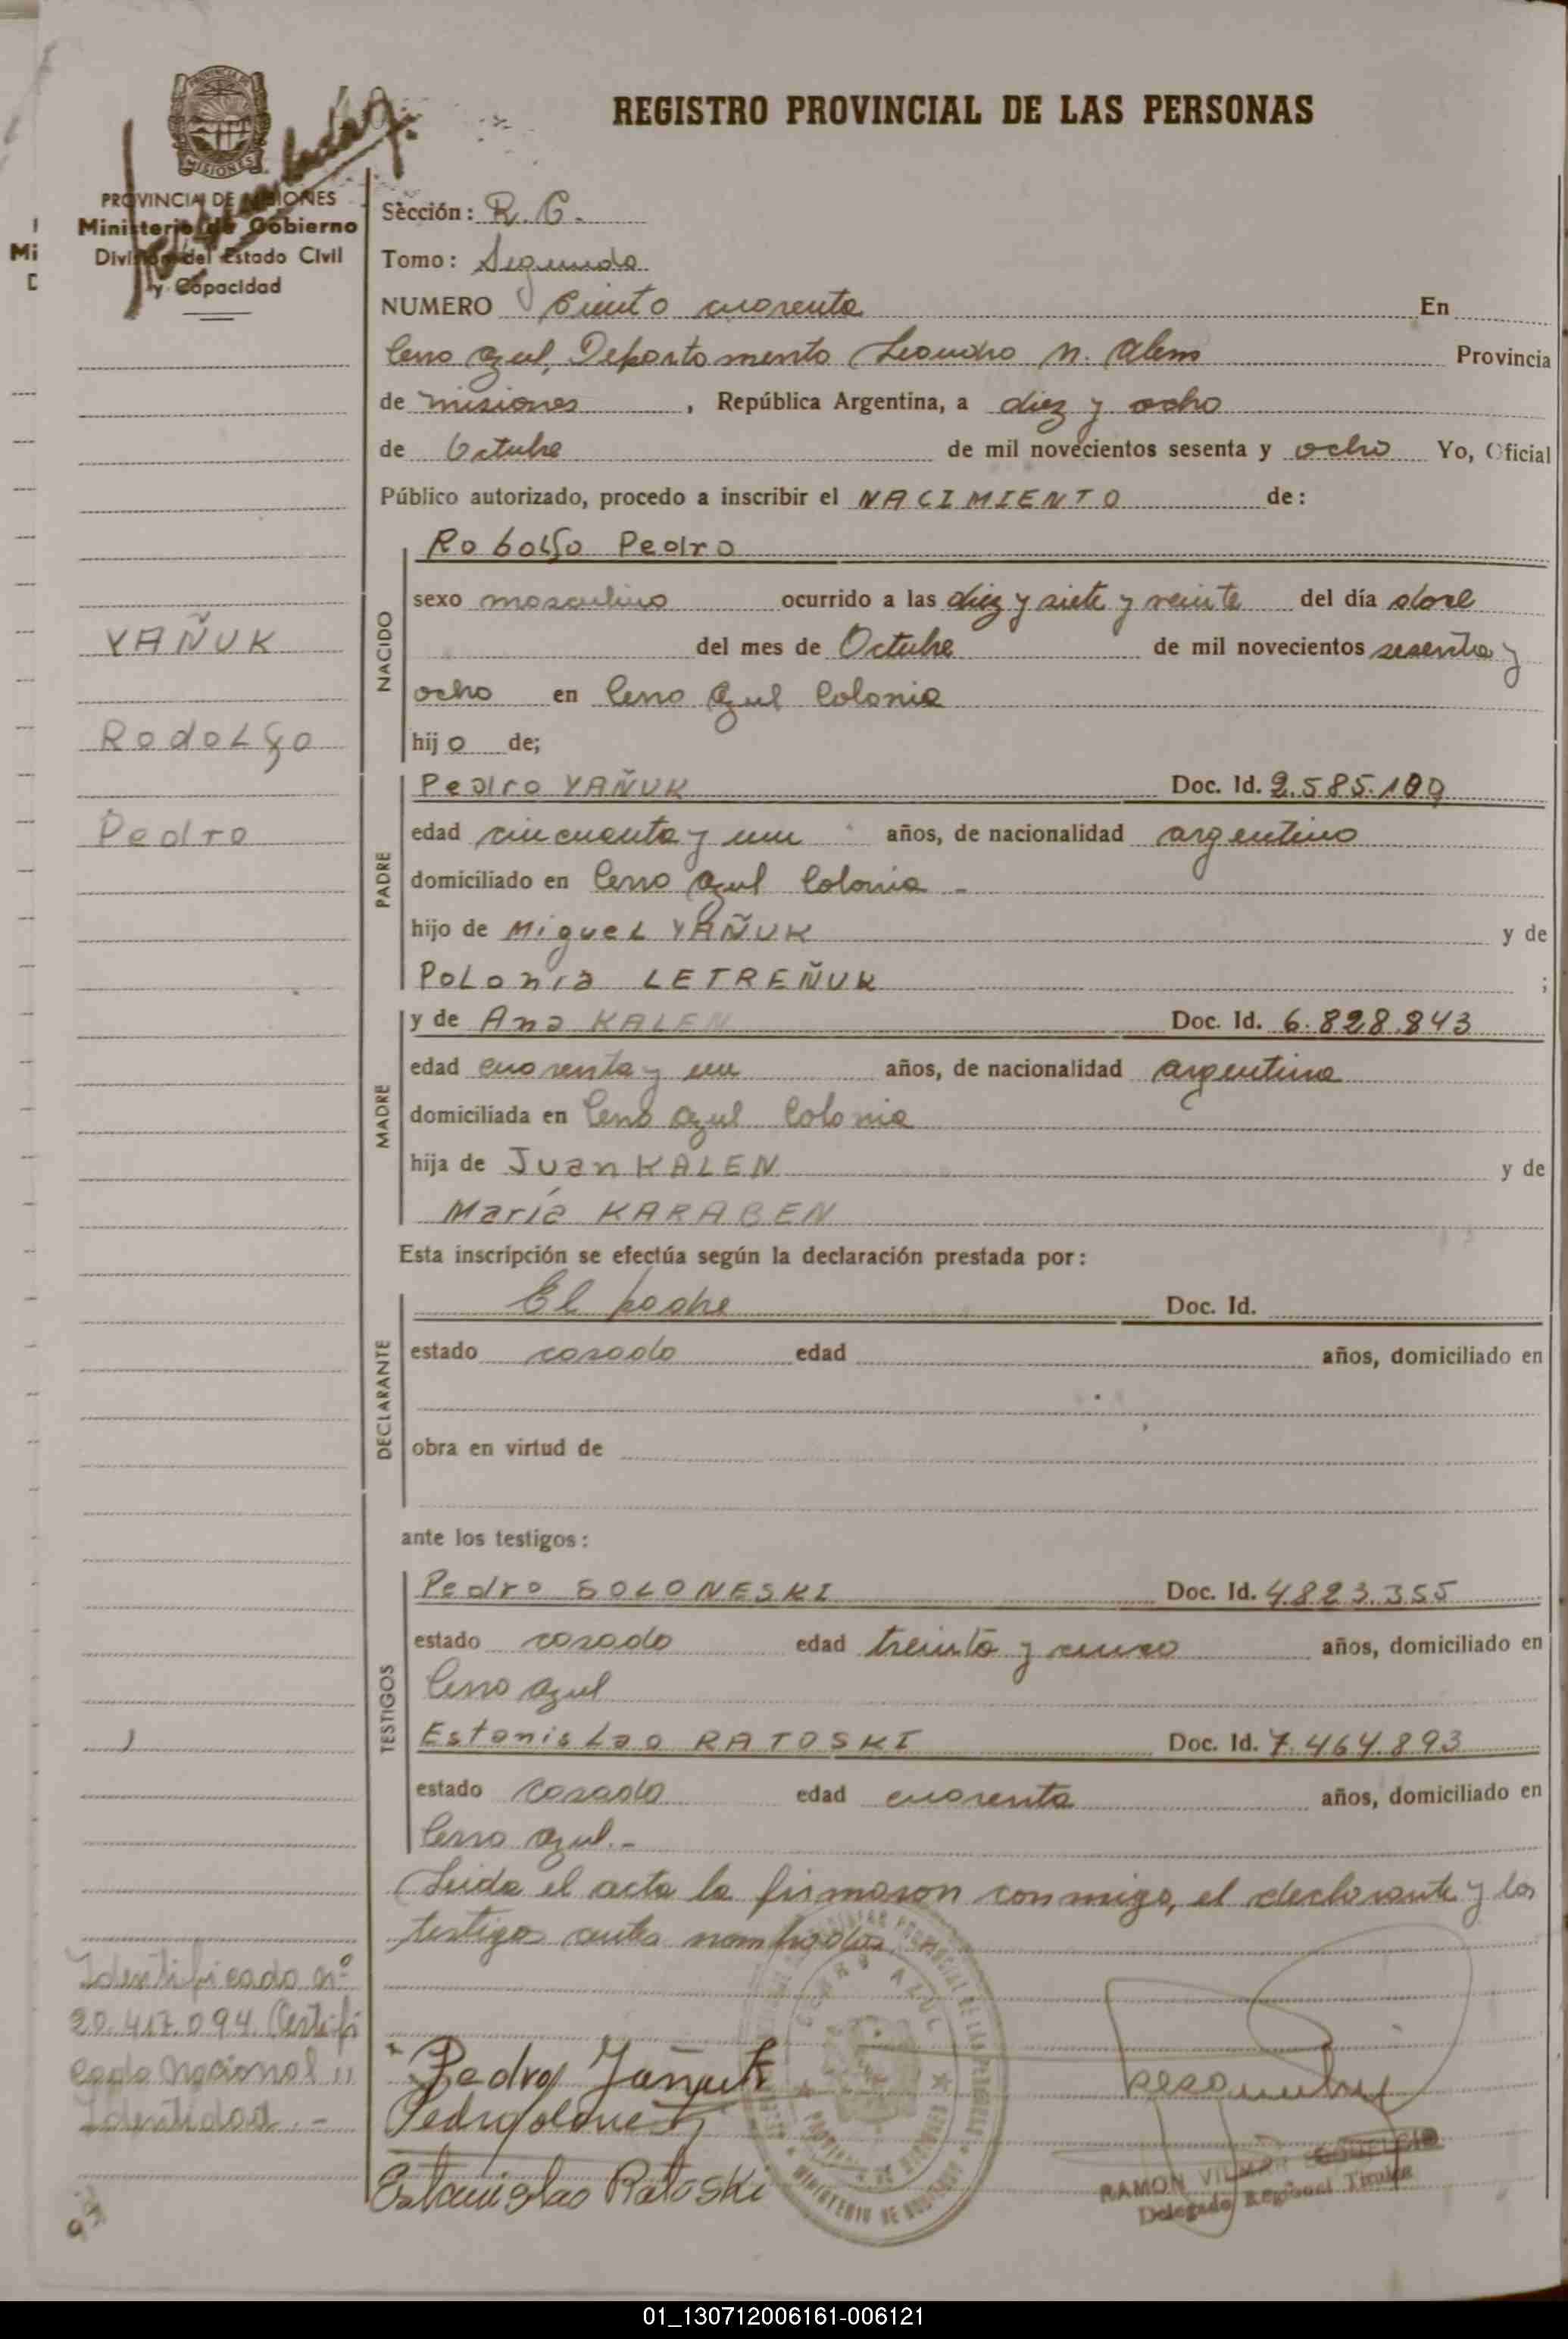 REGISTRO PROVINCIAL DE LAS PERSONAS
PROVINCIA DE
MISIONES
PROVINCIA DE MISIONES
Ministerio de Gobierno
División del Estado Civil
y Capacidad
Sección: R. C.
Tomo: Segundo
NUMERO Ciento cuarenta En
Cerro Azul, Departamento Leandro N. Alem Provincia
de Misiones, República Argentina, a diez y ocho
de Octubre de mil novecientos sesenta y ocho Yo, Oficial
Público autorizado, procedo a inscribir el NACIMIENTO de:
NACIDO
RobolFo Pedro
sexo masculino ocurrido a las diez y siete y veinte del día doce
del mes de Octubre de mil novecientos sesenta y
ocho en Cerro Azul Colonia
hijo de;
YAÑUK
Rodolfo
Pedro
PADRE
Pedro YAÑUK Doc. Id. 2.585.109
edad cincuenta y un años, de nacionalidad argentino
domiciliado en Cerro Azul Colonia -
hijo de Miguel YAÑUK y de
Polonia LETREÑUK ;
MADRE
y de Ana KALEN Doc. Id. 6.828.843
edad cuarenta y un años, de nacionalidad argentina
domiciliada en Cerro Azul Colonia
hija de Juan KALEN y de
María KARABEN
Esta inscripción se efectúa según la declaración prestada por:
DECLARANTE
El padre Doc. Id.
estado casado edad años, domiciliado en
obra en virtud de
ante los testigos:
TESTIGOS
Pedro SOLONESKI Doc. Id. 4.823.355
estado casado edad treinta y cinco años, domiciliado en
Cerro Azul
Estanislao RATOSKI Doc. Id. 7.464.893
estado casado edad cuarenta años, domiciliado en
Cerro Azul.-
Leida el acta la firmaron conmigo, el declarante y los
testigos antes nombrados.
Identificado nº
20.417.094 Certifi
cado Nacional
Identidad.-
Pedro Yañuk
Estanislao Ratoski
CERRO AZUL
RAMON VILMAR
Delegado Regional Titular
01_130712006161-006121